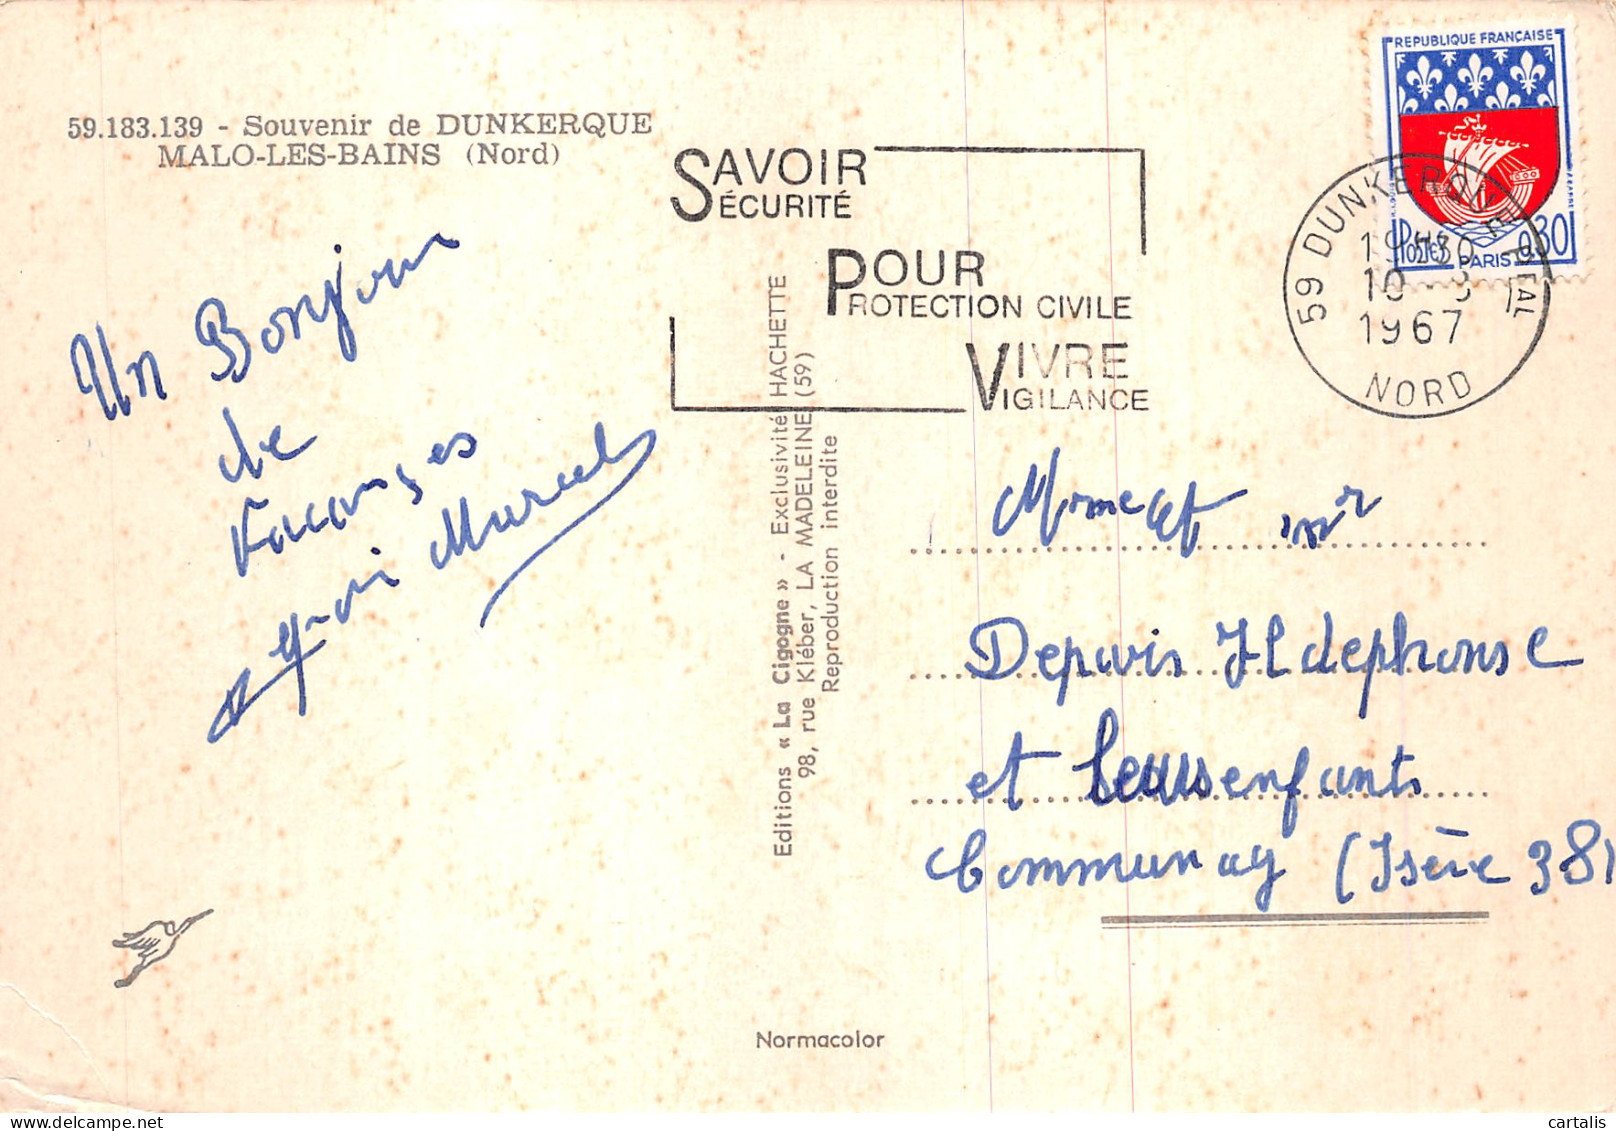 59.183.139 - Souvenir de DUNKERQUE
MALO-LES-BAINS (Nord)
SAVOIR
SÉCURITÉ
POUR
PROTECTION CIVILE
VIVRE
VIGILANCE
REPUBLIQUE FRANÇAISE
POSTES
PARIS
0,30
59 DUNKERQUE
10
1967
NORD
Un Bonjour
de
Vacances
Marcel
Editions « La Cigogne » - Exclusivité HACHETTE
98, rue Kléber, LA MADELEINE (59)
Reproduction interdite
Mme et mr
Depuis Ildephonse
et leurs enfants
Communay (Isère 38)
Normacolor
cartalis